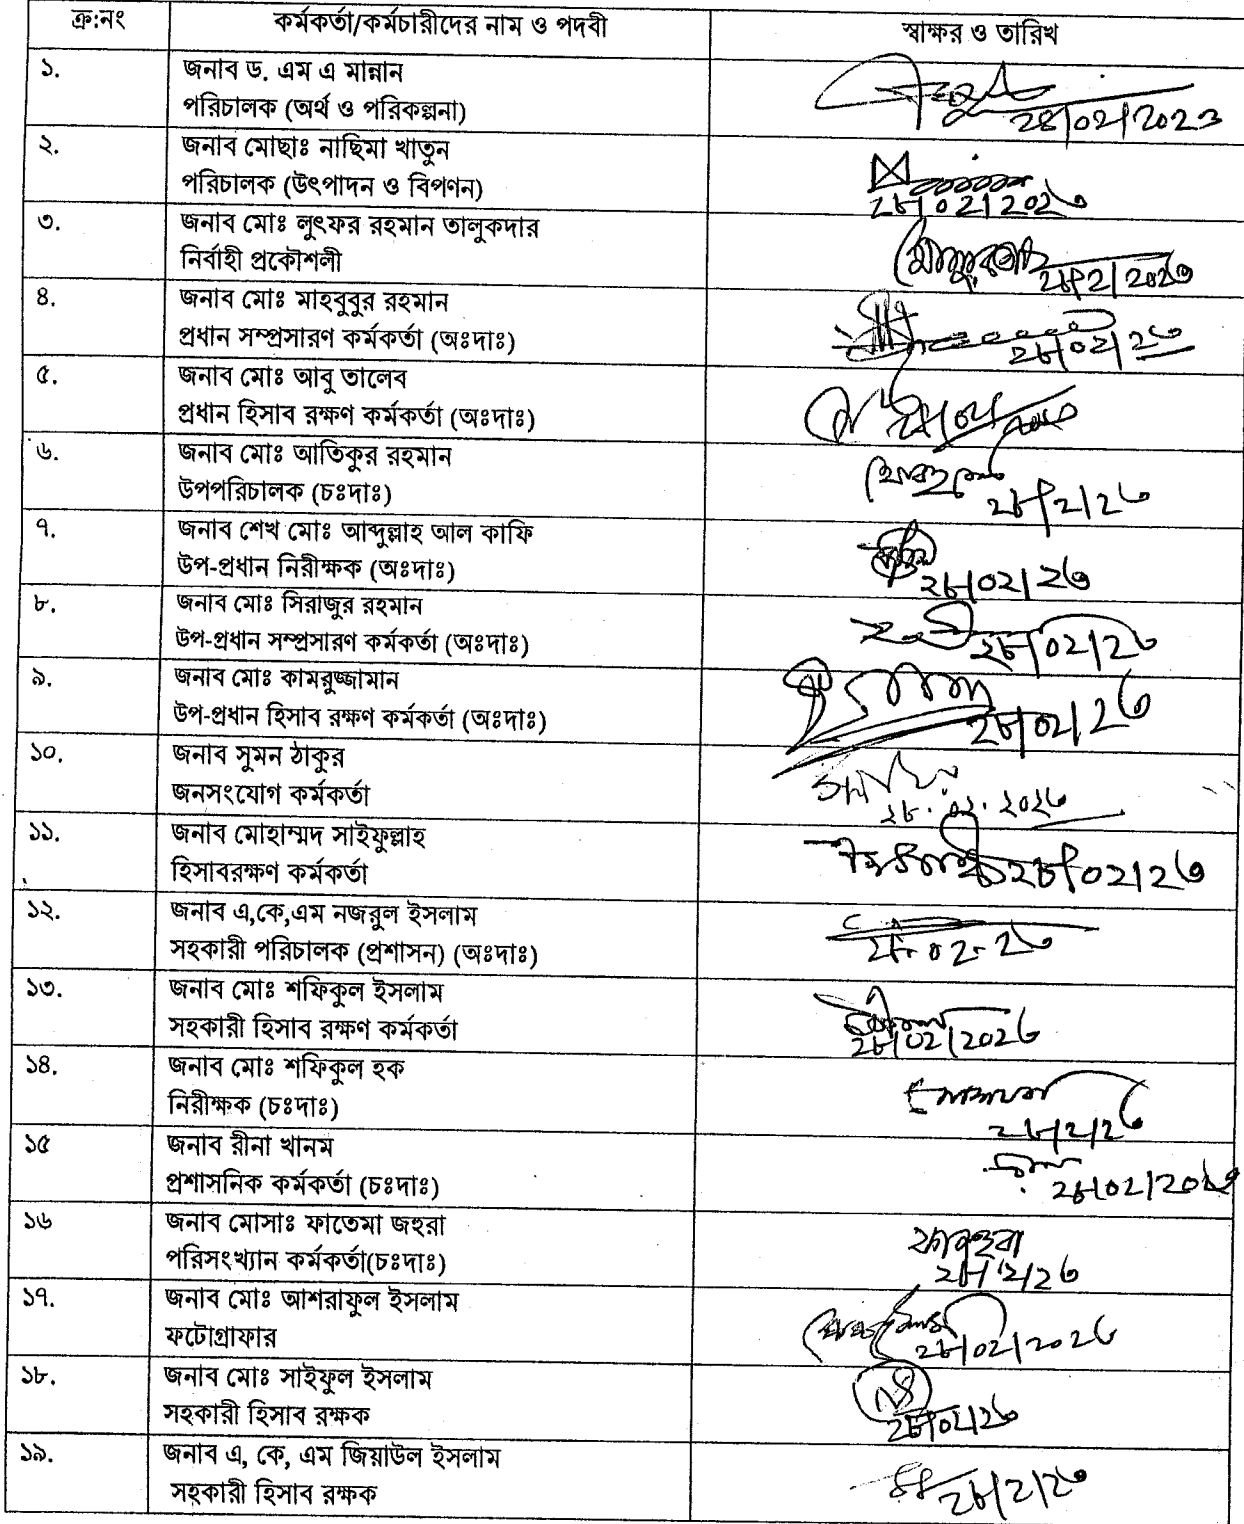 ক্র:নং কর্মকর্তা/কর্মচারীদের নাম ও পদবী স্বাক্ষর ও তারিখ
১. জনাব ড. এম এ মান্নান
পরিচালক (অর্থ ও পরিকল্পনা)
২. জনাব মোছাঃ নাছিমা খাতুন
পরিচালক (উৎপাদন ও বিপণন)
২৮/০২/২০২৩
৩. জনাব মোঃ লুৎফর রহমান তালুকদার
নির্বাহী প্রকৌশলী
২৮/২/২০২৩
৪. জনাব মোঃ মাহবুবুর রহমান
প্রধান সম্প্রসারণ কর্মকর্তা (অঃদাঃ)
২৮/০২/২৩
৫. জনাব মোঃ আবু তালেব
প্রধান হিসাব রক্ষণ কর্মকর্তা (অঃদাঃ)
৬. জনাব মোঃ আতিকুর রহমান
উপপরিচালক (চঃদাঃ)
২৮/২/২৩
৭. জনাব শেখ মোঃ আব্দুল্লাহ আল কাফি
উপ-প্রধান নিরীক্ষক (অঃদাঃ)
২৮/০২/২৩
৮. জনাব মোঃ সিরাজুর রহমান
উপ-প্রধান সম্প্রসারণ কর্মকর্তা (অঃদাঃ)
২৮/০২/২৩
৯. জনাব মোঃ কামরুজ্জামান
উপ-প্রধান হিসাব রক্ষণ কর্মকর্তা (অঃদাঃ)
২৮/০২/২৩
১০. জনাব সুমন ঠাকুর
জনসংযোগ কর্মকর্তা
২৮.০২.২০২৩
১১. জনাব মোহাম্মদ সাইফুল্লাহ
হিসাবরক্ষণ কর্মকর্তা
২৮/০২/২৩
১২. জনাব এ,কে,এম নজরুল ইসলাম
সহকারী পরিচালক (প্রশাসন) (অঃদাঃ)
২৮.০২.২৩
১৩. জনাব মোঃ শফিকুল ইসলাম
সহকারী হিসাব রক্ষণ কর্মকর্তা
২৮/০২/২০২৩
১৪. জনাব মোঃ শফিকুল হক
নিরীক্ষক (চঃদাঃ)
২৮/২/২৩
১৫ জনাব রীনা খানম
প্রশাসনিক কর্মকর্তা (চঃদাঃ)
২৮/০২/২০২৩
১৬ জনাব মোসাঃ ফাতেমা জহুরা
পরিসংখ্যান কর্মকর্তা(চঃদাঃ)
২৮/২/২৩
১৭. জনাব মোঃ আশরাফুল ইসলাম
ফটোগ্রাফার
২৮/০২/২০২৩
১৮. জনাব মোঃ সাইফুল ইসলাম
সহকারী হিসাব রক্ষক
২৮/০২/২৩
১৯. জনাব এ, কে, এম জিয়াউল ইসলাম
সহকারী হিসাব রক্ষক
২৮/২/২৩